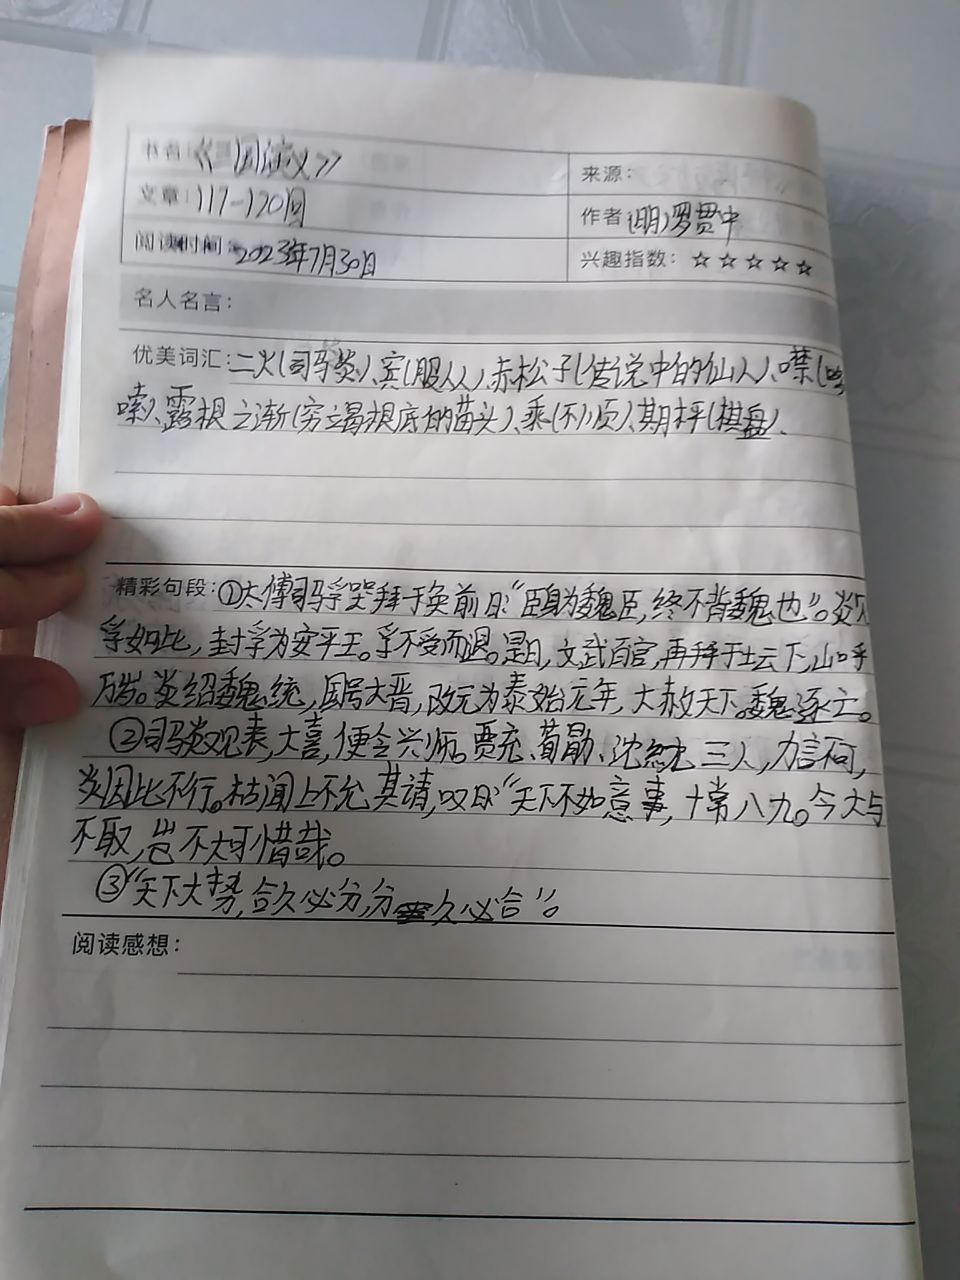 书名：《三国演义》
来源：
文章：117-120回
作者：(明)罗贯中
阅读时间：2023年7月30日
兴趣指数：☆☆☆☆☆
名人名言：
优美词汇：二火(司马炎)、宾(服人)、赤松子(传说中的仙人)、噤(
嗦)、露根之渐(穷竭根底的苗头)、乘(不)顺)、期枰(棋盘)、
精彩句段：①太傅司马孚哭拜于奂前曰“臣身为魏臣，终不背魏也”。炎见
孚如此，封孚为安平王。孚不受而退。是日，文武百官，再拜于坛下，山呼
万岁。炎绍魏统，国号大晋，改元为泰始元年，大赦天下。魏逐亡。
②司马炎观表，大喜，便令兴师。贾充、荀勖、沈𬘘三人，力言不可，
炎因此不行。祜闻上不允其请，叹曰“天下不如意事，十常八九。今天与
不取，岂不大可惜哉。
③“天下大势，合久必分，分久必合”。
阅读感想：